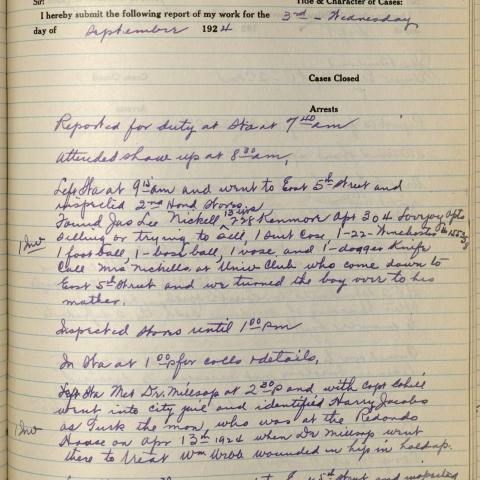 Sir:
Title & Character of Cases:
I hereby submit the following report of my work for the 3rd - Wednesday
day of September 1924
Cases Closed
Arrests
Reported for duty at Sta at 7 40 am
attended show up at 8 30 am,
Left Sta at 9 15 am and went to East 5th Street and
inspected 2nd Hand Stores.
Found Jas Lee Nickell 13 yrs 728 Kenmore Apt 304 Lovejoy Apts
Selling or trying to sell, 1 Suit Case, 1-22-Winchester
1 Inv
1 foot ball, 1-base ball, 1 vase, and 1-dagger Knife
Call Mrs Nickells, at Univ Club who come down to
East 5th Street and we turned the boy over to his
mother.
Inspected Stores until 1 00 pm
In Sta at 1 00 p for calls & details,
Left Sta Met Dr. Milsop at 2 30 p and with Capt Cahill
went into city jail and identified Harry Jacobs
as Turk the man, who was at the Redondo
1 Inv
House on Apr 13th 1924 when Dr Milsop went
there to treat Wm Webb wounded in hip in holdup.
5th Street and inspected